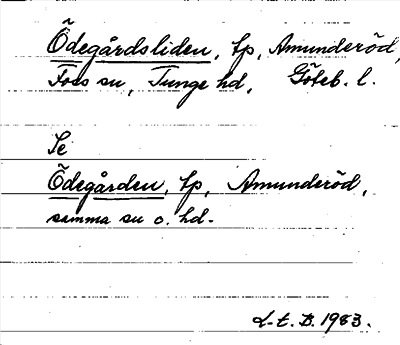 Ödegårdsliden, tp, Amunderöd,
Foss sn, Tunge hd, Göteb. l.
Se
Ödegården, tp, Amunderöd,
samma sn o. hd.
L-t. B. 1983.